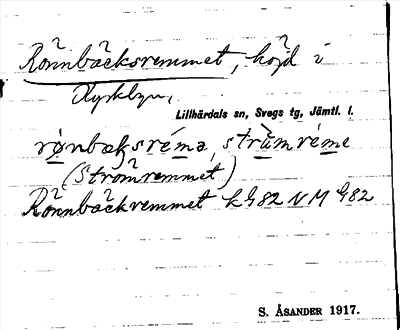 Rönnbäcksremmet, höjd i
Kyrkbyn,
Lillhärdals sn, Svegs tg, Jämtl. l.
rønbæksréme, strùmréme
(Strömremmet)
Rönnbäckremmet kG82 NM G82
S. ÅSANDER 1917.